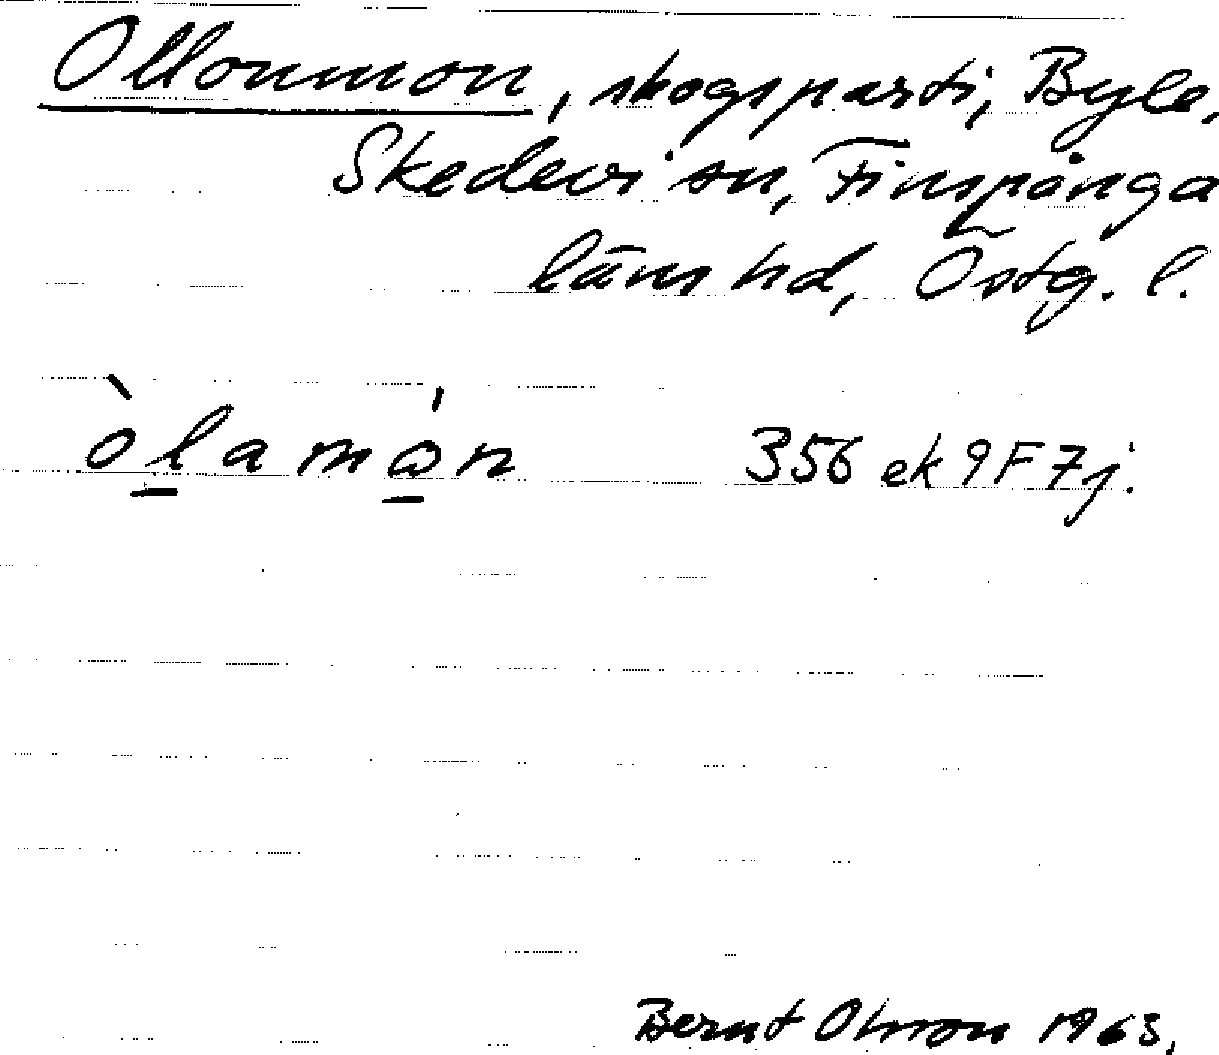 Ollonmon, skogsparti, Byle,
Skedevi sn, Finspånga
läns hd, Östg. l.
òlamån 356 ek 9F7j.
Bernt Olsson 1963.